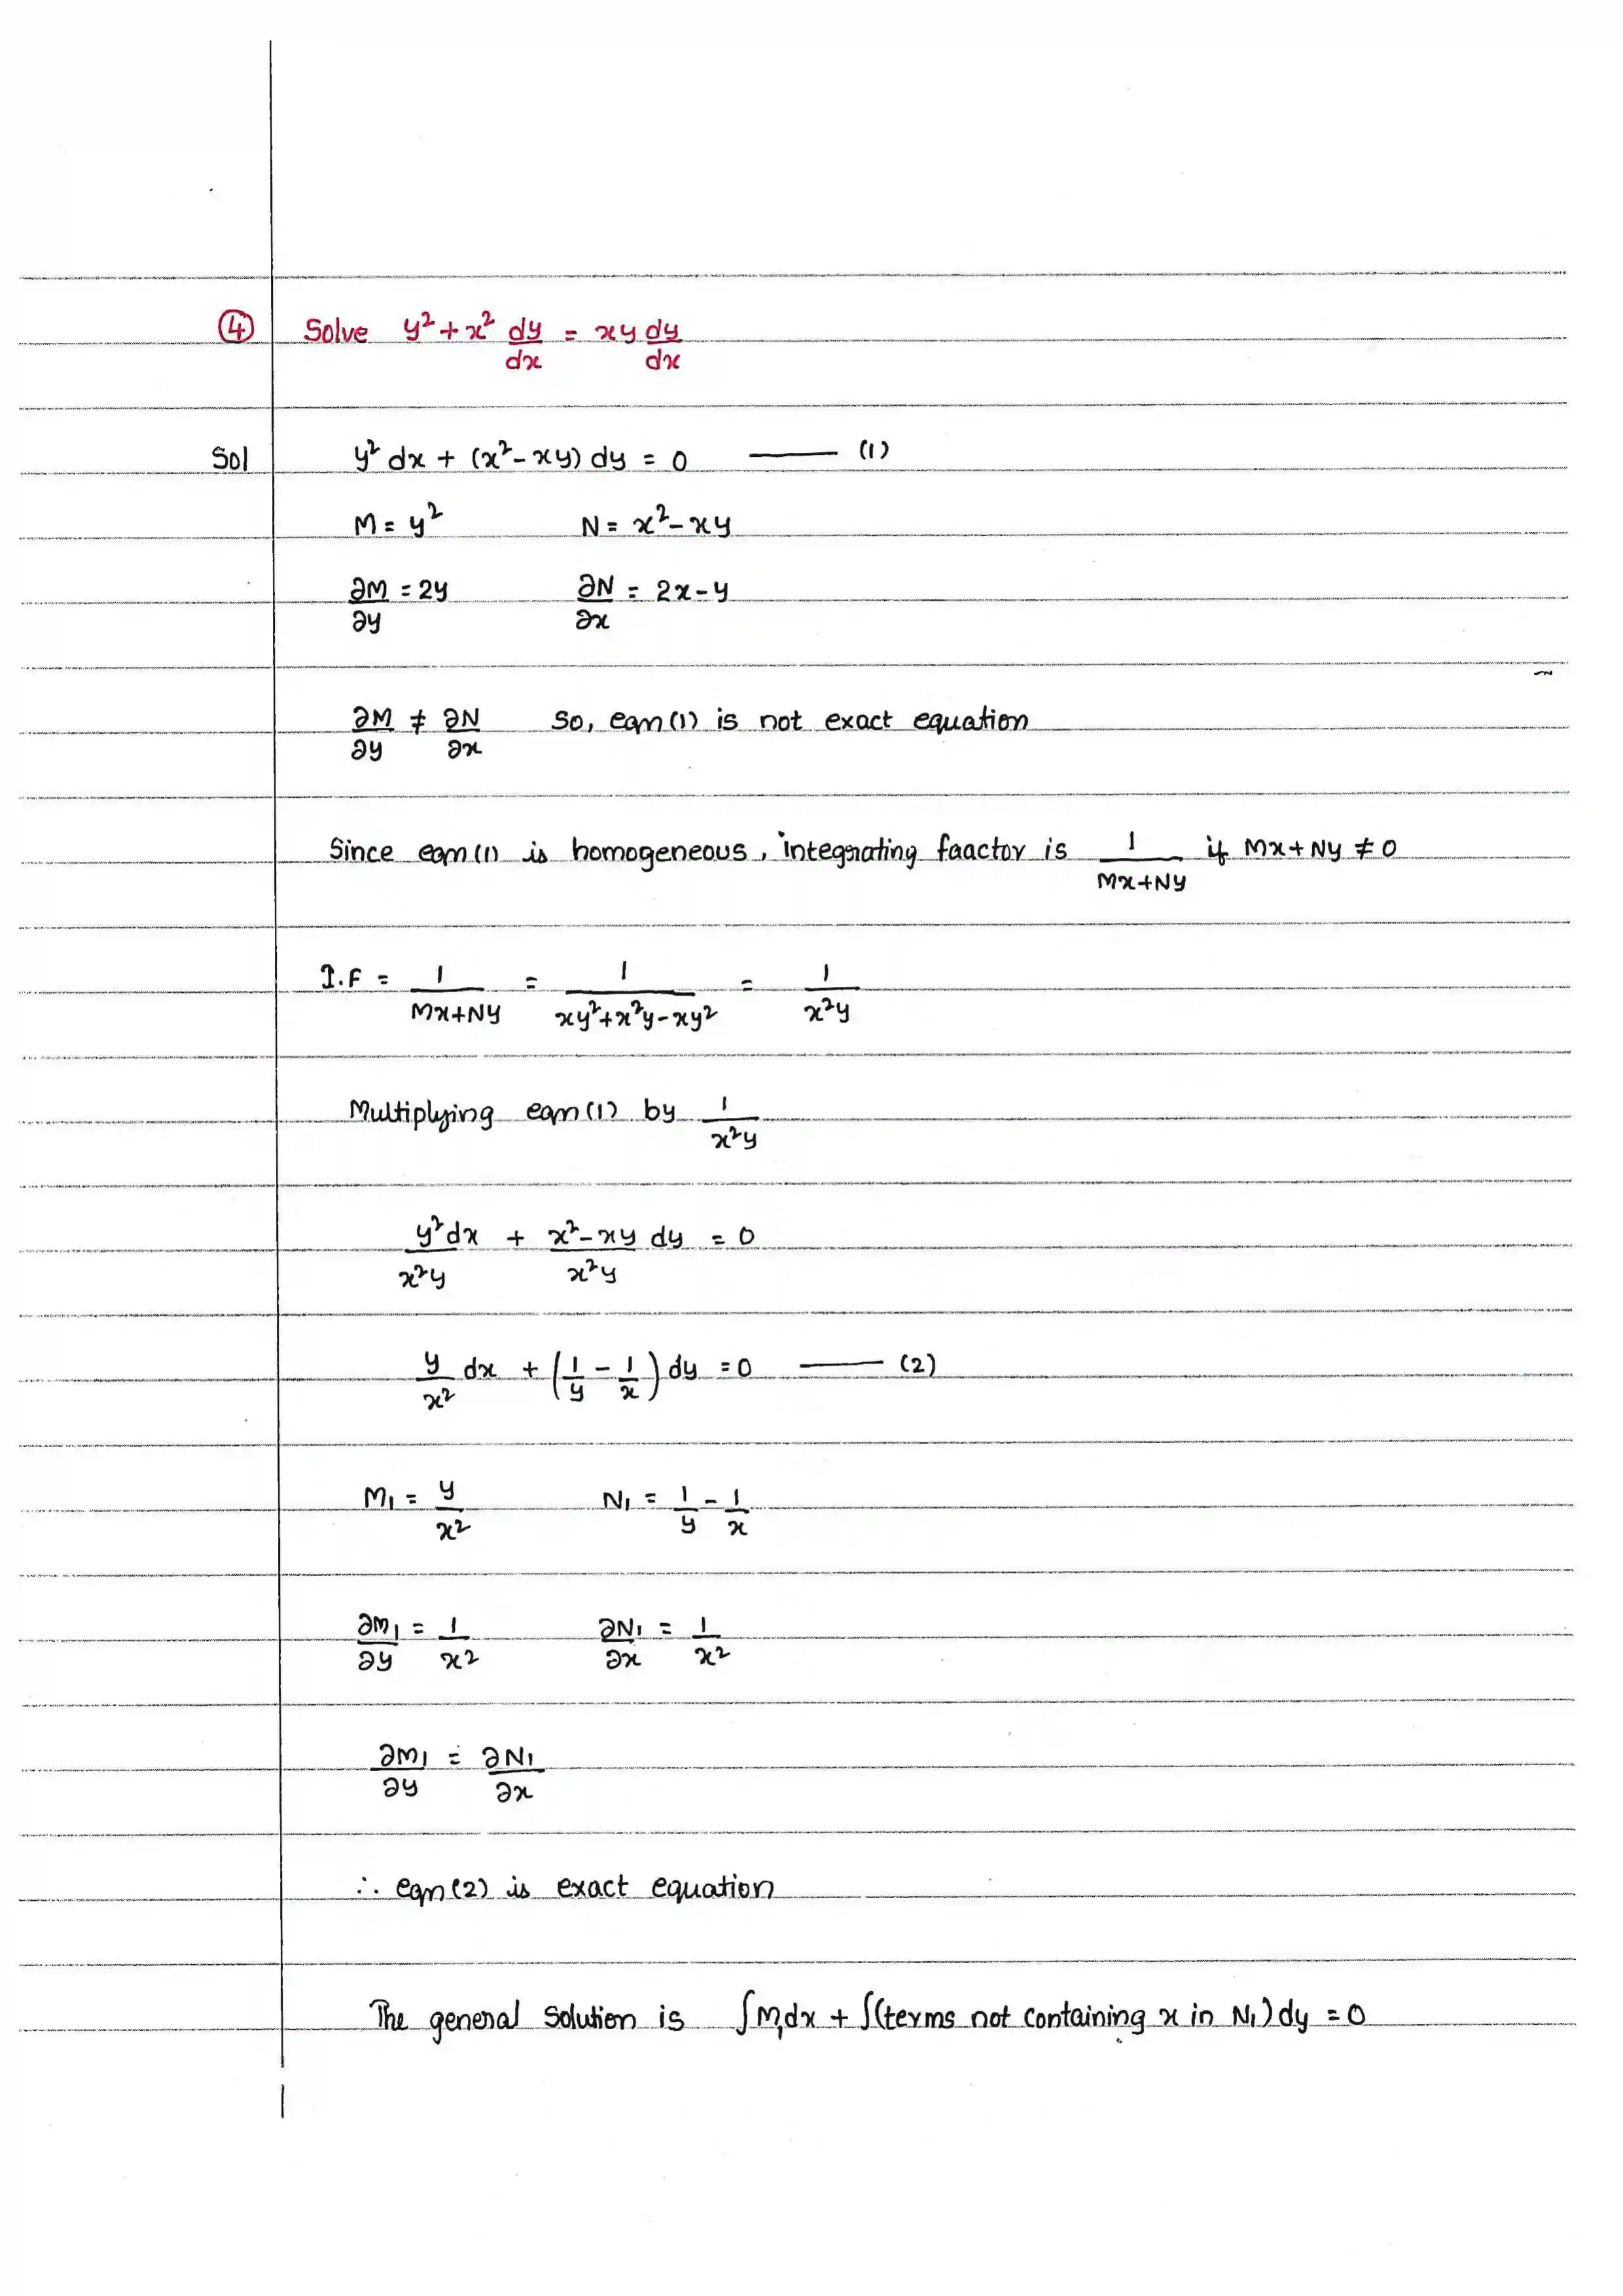 ④ Solve y² + x² dy/dx = xy dy/dx
Sol y² dx + (x² - xy) dy = 0 —— (1)
M = y² N = x² - xy
∂M/∂y = 2y ∂N/∂x = 2x - y
∂M/∂y ≠ ∂N/∂x So, eqn (1) is not exact equation
Since eqn (1) is homogeneous, integrating faactor is 1/(Mx+Ny) if Mx + Ny ≠ 0
I.F = 1/(Mx+Ny) = 1/(xy²+x²y-xy²) = 1/(x²y)
Multiplying eqn (1) by 1/(x²y)
y²dx/(x²y) + (x²-xy)/(x²y) dy = 0
y/x² dx + (1/y - 1/x) dy = 0 —— (2)
M₁ = y/x² N₁ = 1/y - 1/x
∂M₁/∂y = 1/x² ∂N₁/∂x = 1/x²
∂M₁/∂y = ∂N₁/∂x
∴ eqn (2) is exact equation
The general solution is ∫M₁dx + ∫(terms not containing x in N₁) dy = 0